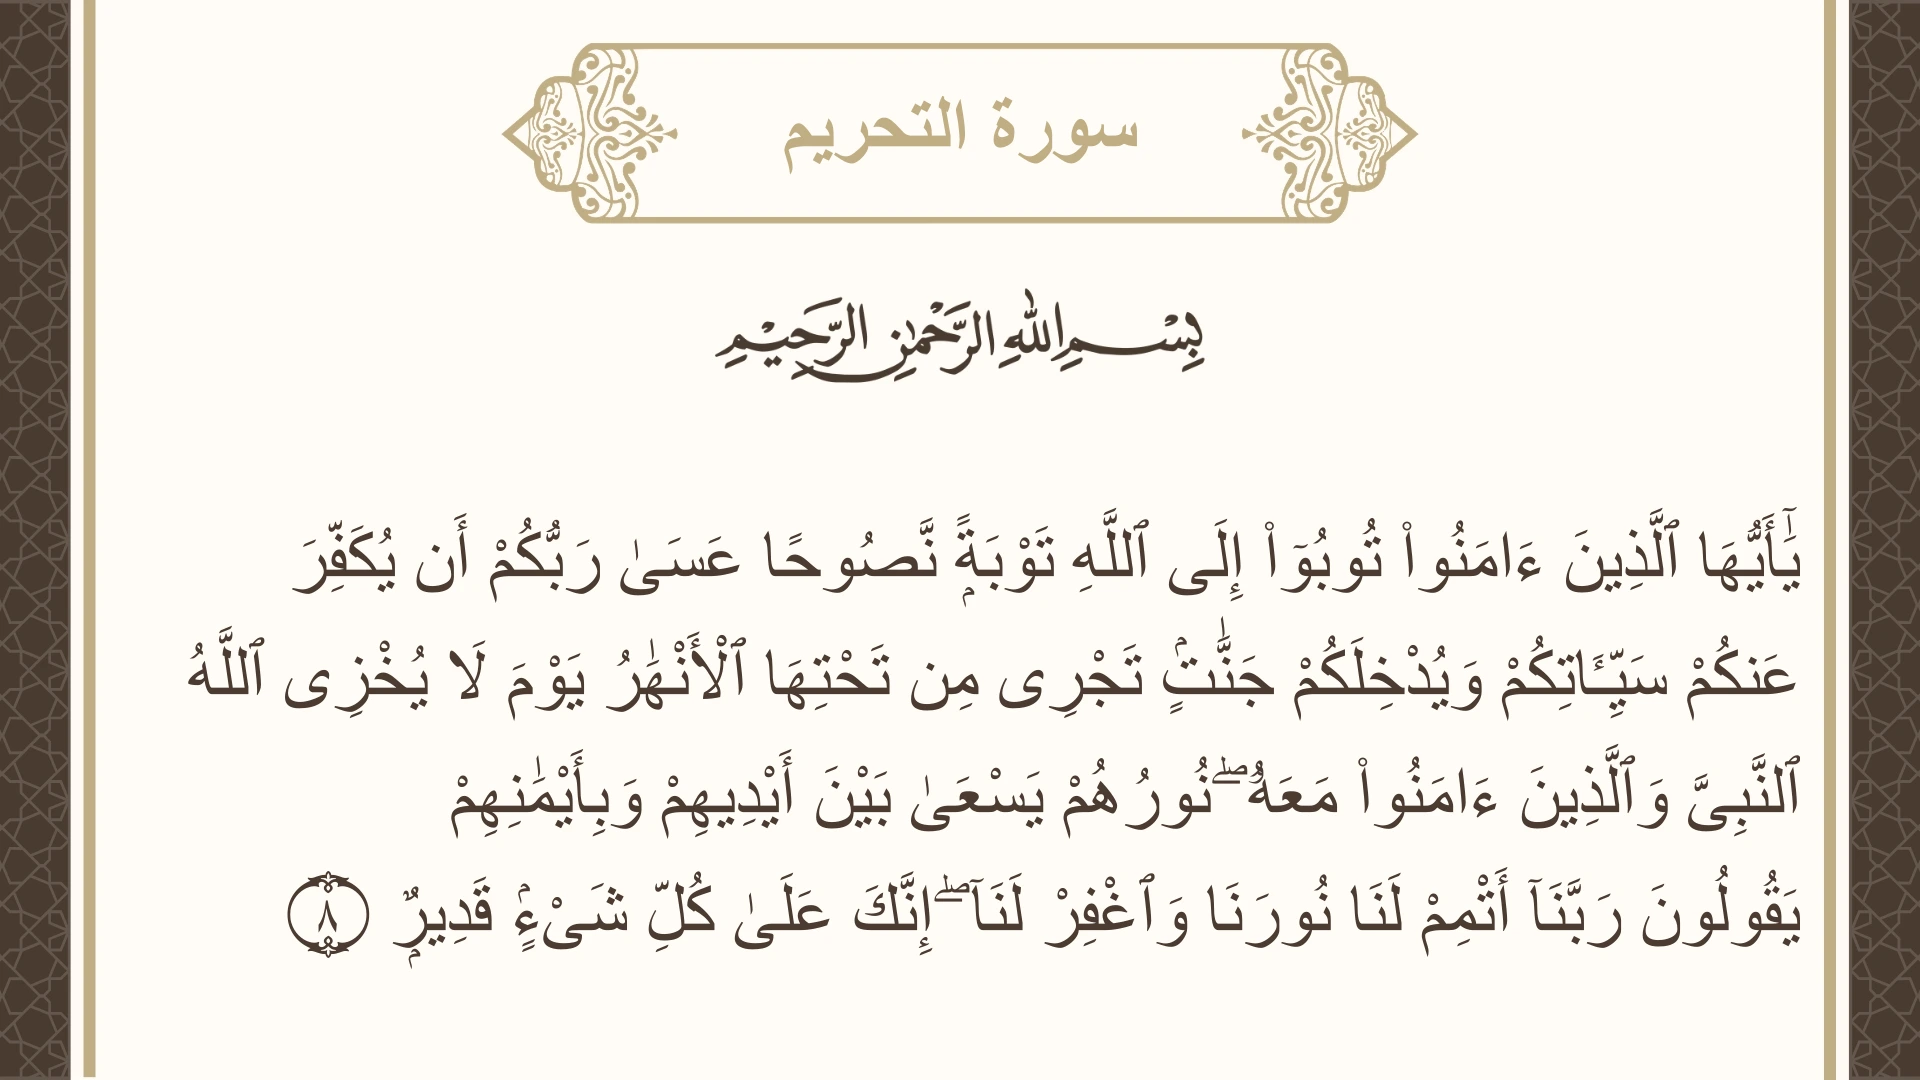 سورة التحريم
بِسْمِ اللهِ الرَّحْمٰنِ الرَّحِيْمِ
يَٰٓأَيُّهَا ٱلَّذِينَ ءَامَنُوا۟ تُوبُوٓا۟ إِلَى ٱللَّهِ تَوْبَةًۭ نَّصُوحًا عَسَىٰ رَبُّكُمْ أَن يُكَفِّرَ
عَنكُمْ سَيِّـَٔاتِكُمْ وَيُدْخِلَكُمْ جَنَّٰتٍۢ تَجْرِى مِن تَحْتِهَا ٱلْأَنْهَٰرُ يَوْمَ لَا يُخْزِى ٱللَّهُ
ٱلنَّبِىَّ وَٱلَّذِينَ ءَامَنُوا۟ مَعَهُۥ ۖ نُورُهُمْ يَسْعَىٰ بَيْنَ أَيْدِيهِمْ وَبِأَيْمَٰنِهِمْ
يَقُولُونَ رَبَّنَآ أَتْمِمْ لَنَا نُورَنَا وَٱغْفِرْ لَنَآ ۖ إِنَّكَ عَلَىٰ كُلِّ شَىْءٍۢ قَدِيرٌۭ ٨